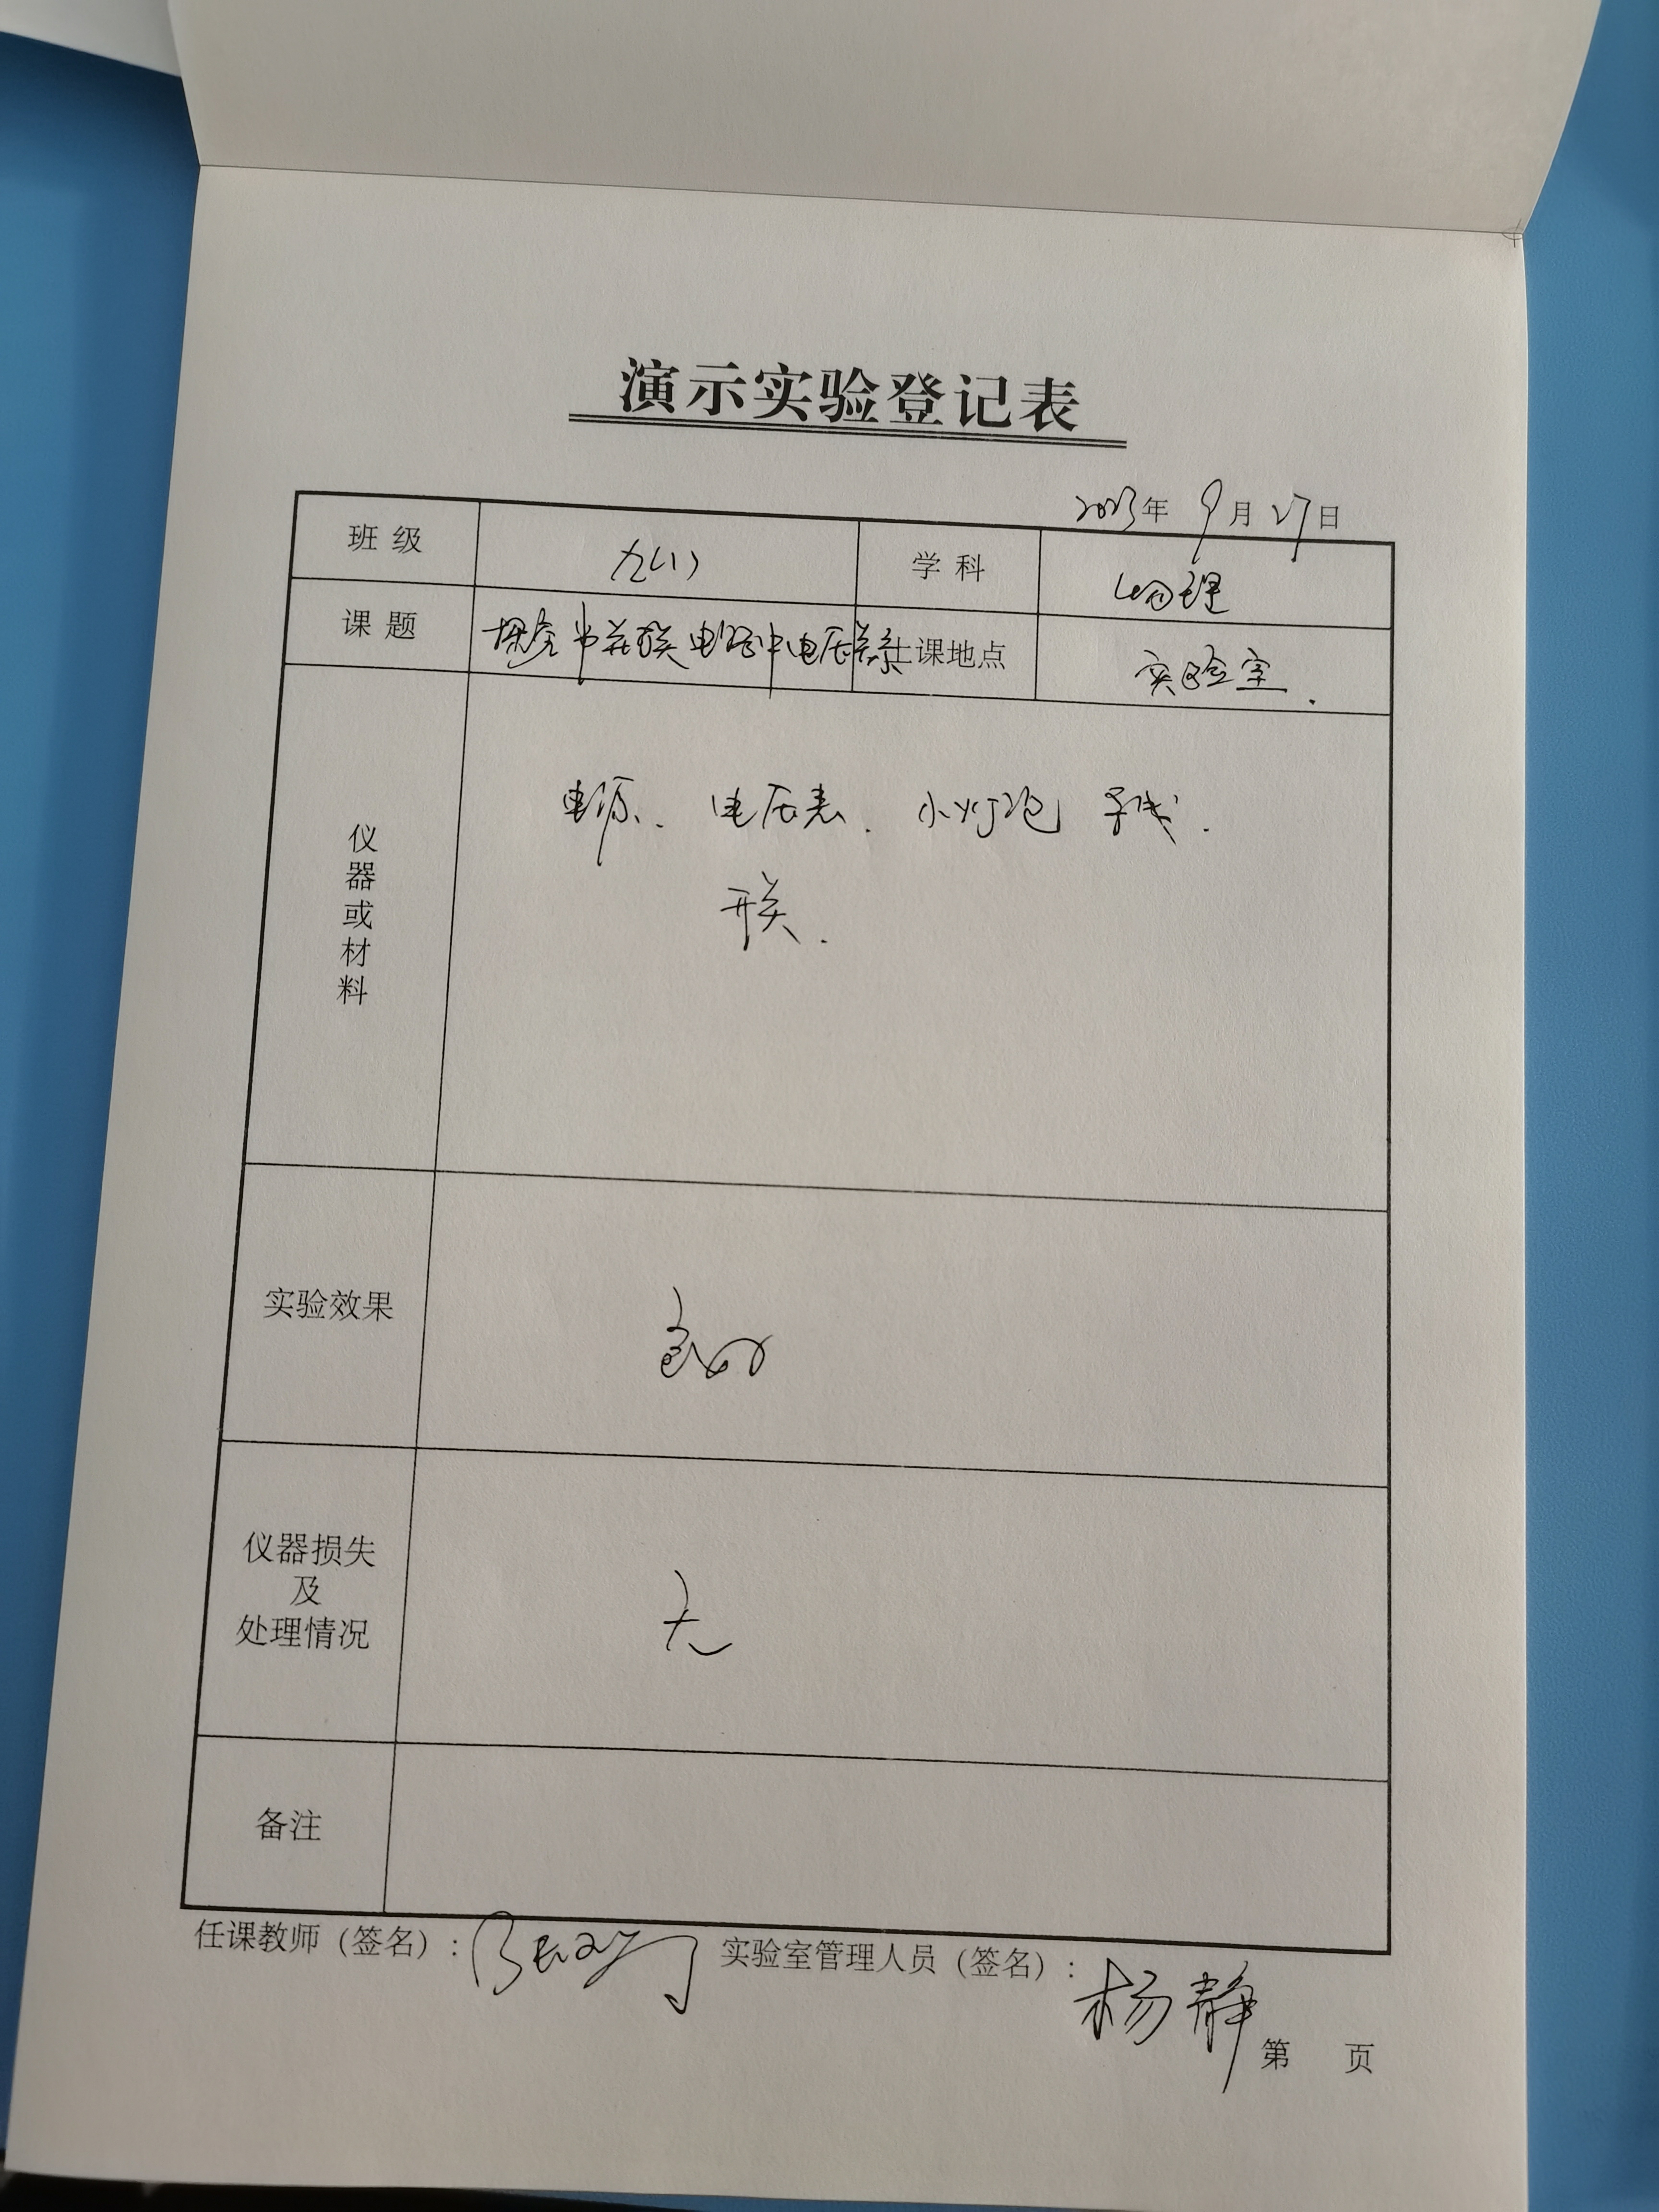 演示实验登记表
2023年 9月27日
班级 九(1) 学科 物理
课题 探究串并联电路中电压关系 上课地点 实验室.
仪器或材料
电源、电压表、小灯泡 导线.
开关.
实验效果 良好
仪器损失
及
处理情况
无
备注
任课教师（签名）: 实验室管理人员（签名）: 杨静
第 页